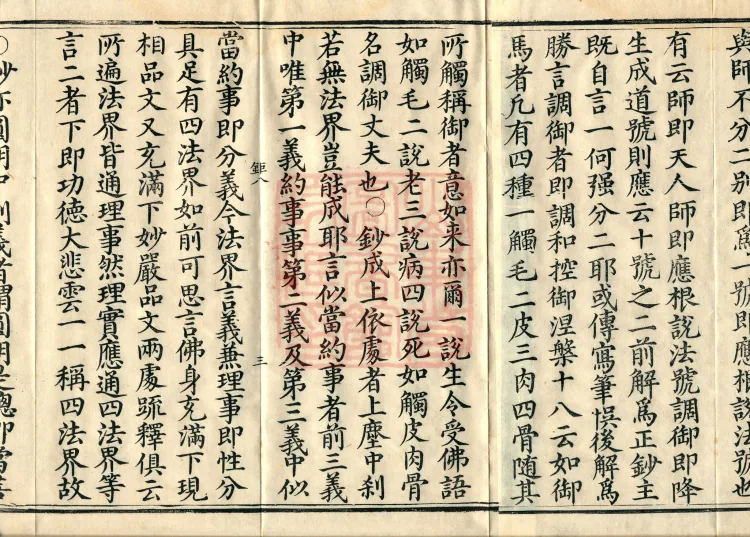 與師不分二別即爲一號即應根說法號也
有云師即天人師即應根說法號調御即降
生成道號則應云十號之二前解爲正鈔主
既自言一何强分二耶或傳寫筆悮後解爲
勝言調御者即調和控御涅槃十八云如御
馬者凢有四種一觸毛二皮三肉四骨隨其
所觸稱御者意如来亦爾一說生令受佛語
如觸毛二說老三說病四說死如觸皮肉骨
名調御丈夫也〇鈔成上依處者上塵中刹
若無法界豈能成耶言似當約事者前三義
中唯第一義約事事第二義及第三義中似
鉅八
三
當約事即分義今法界言義兼理事即性分
具足有四法界如前可思言佛身充滿下現
相品文又充滿下妙嚴品文兩處䟽釋俱云
所遍法界皆通理事然理實應通四法界等
言二者下即功德大悲雲一一稱四法界故
〇鈔亦圓明中